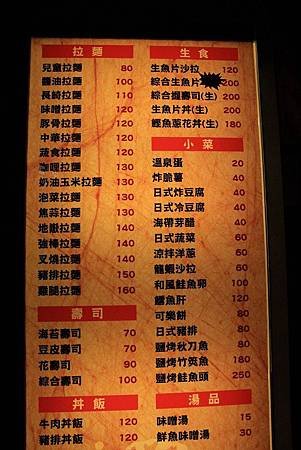 拉麵
兒童拉麵 80
醬油拉麵 100
長崎拉麵 110
味噌拉麵 130
豚骨拉麵 130
中華拉麵 130
蔬食拉麵 130
咖哩拉麵 130
奶油玉米拉麵 130
泡菜拉麵 130
焦蒜拉麵 130
地嶽拉麵 140
強棒拉麵 140
叉燒拉麵 150
豬排拉麵 150
雞腿拉麵 160
壽司
海苔壽司 70
豆皮壽司 70
花壽司 90
綜合壽司 100
丼飯
牛肉丼飯 120
豬排丼飯 120
生食
生魚片沙拉 120
綜合生魚片 200
綜合握壽司(生) 200
生魚片丼(生) 200
鰹魚蔥花丼(生) 180
小菜
溫泉蛋 20
炸脆薯 40
日式炸豆腐 40
日式冷豆腐 40
海帶芽醋 40
日式蔬菜 60
涼拌洋蔥 50
龍蝦沙拉 60
和風鮭魚卵 100
鱈魚肝 120
可樂餅 80
日式豬排 80
鹽烤秋刀魚 80
鹽烤竹筴魚 180
鹽烤鮭魚頭 250
湯品
味噌湯 15
鮮魚味噌湯 30